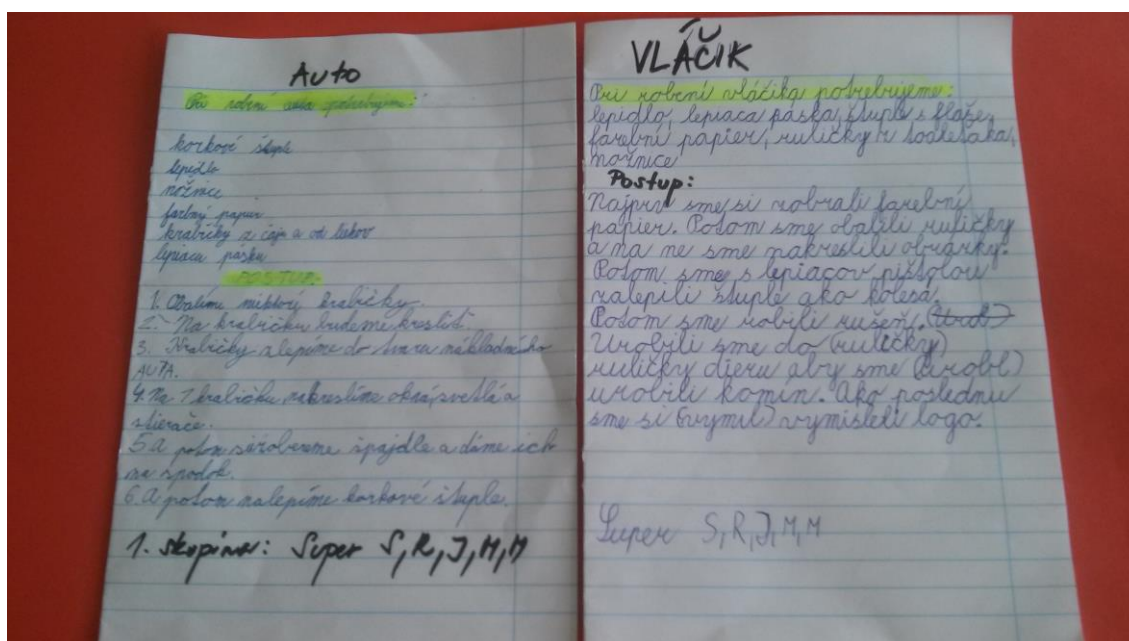 Auto
Pri robení auta potrebujeme:
korkové štuple
lepidlo
nožnice
farbný papier
krabičky z čaju a od liekov
lepiacu pásku
POSTUP:
1. Obalíme krabičky.
2. Na krabičku budeme kresliť.
3. Krabičky zlepíme do tvaru nákladného
AUTA.
4. Na 1 krabičku nakreslíme okná, svetlá a
stierače.
5. A potom si zoberieme špajdle a dáme ich
na spodok.
6. A potom nalepíme korkové štuple.
1. skupina: Super S, R, J, M, M
VLÁČIK
Pri robení vláčika potrebujeme:
lepidlo, lepiaca páska, štuple s flaše,
farební papier, ruličky z toaleťáka,
nožnice
Postup:
Najprv sme si zobrali farební
papier. Potom sme obalili ruličky
a na ne sme nakreslili obrázky.
Potom sme s lepiacov pištolou
zalepili štuple ako kolesá.
Potom sme robili rušeň. (Urob)
Urobili sme do (ruličky)
ruličky dieru aby sme (urobl)
urobili komín. Ako poslednu
sme si (vymil) vymisleli logo.
Super S, R, J, M, M